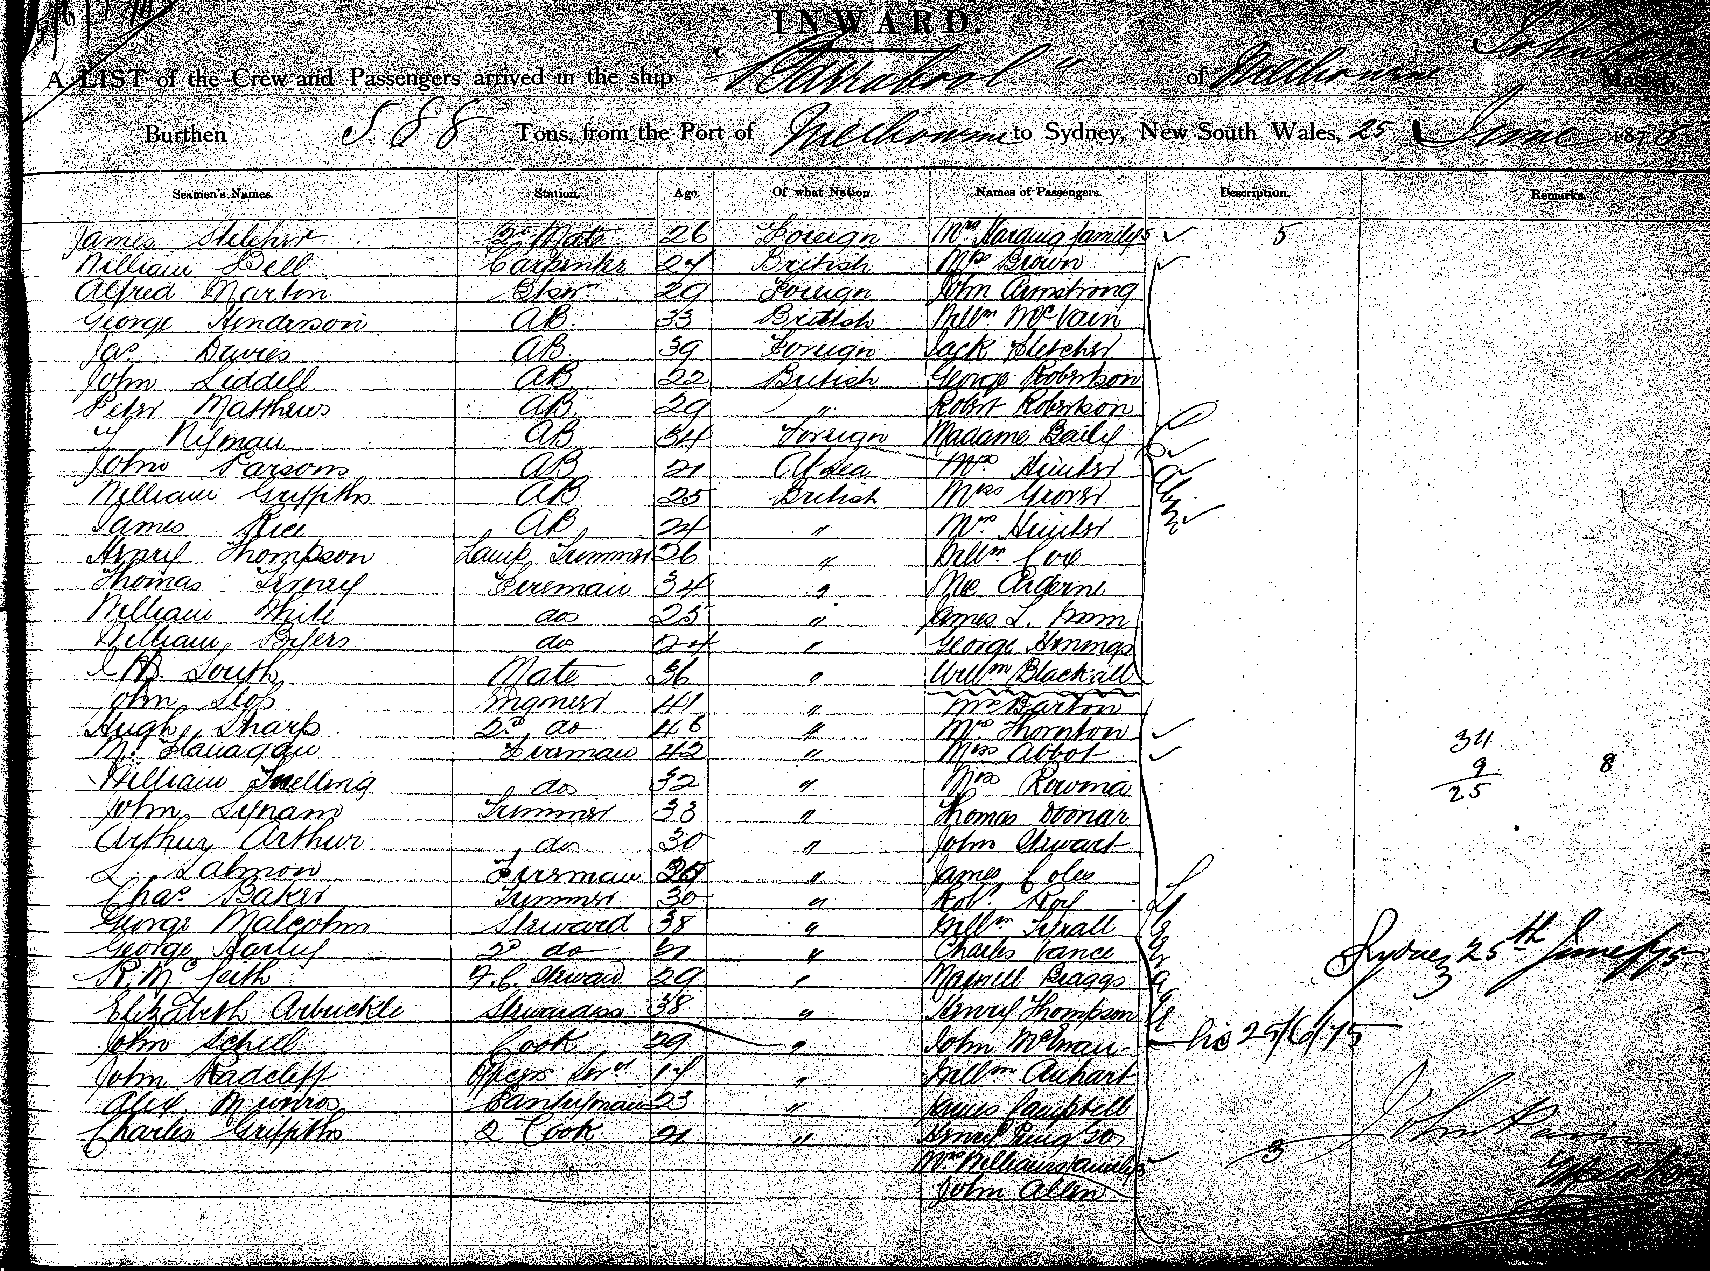 INWARD.
A LIST of the Crew and Passengers arrived in the ship "Barrabool" of Melbourne John Master
Burthen 588 Tons, from the Port of Melbourne to Sydney, New South Wales, 25 June 1875
Seamen's Names. Station. Age. Of what Nation. Names of Passengers. Description. Remarks.
James 2d Mate 26 Foreign Mrs Harding family 5 5
William Bell Carpenter 24 British Mrs Brown
Alfred Marton 29 Foreign John Armstrong
George Henderson AB 33 British Willm McVain
Jas Davies AB 39 Foreign Jack Fletcher
John Liddell AB 22 British George Robertson
Peter Matthews AB 29 " Robert Robertson
Nyman AB 34 Foreign Madame Baily
John Parsons AB 21 At Sea Mrs Hunter
William Griffiths AB 25 British Miss Grover
James Rice AB 24 " Mrs Hunter
Henry Thompson Lamp Trimmer 26 " Willm Cox
Thomas Fireman 34 " Arderne
William White do 25 " James L.
William Byers do 24 " George Hennings
South Mate 36 " Willm Blackall
John Engineer 41 " Barton
Hugh Sharp 2d do 46 " Mrs Thornton
M. Flanagan Fireman 42 " Miss Abbot
William Snelling do 32 " Rowena
John Lynam Trimmer 33 " Thomas
Arthur Arthur do 30 " John Stewart
Salmon Fireman " James Coles
Chas Baker Trimmer 30 " Robt Roy
George Malcolm Steward 38 " Willm
George Hartley 2d do 21 " Charles Vance
R. Mc Steward 29 " Maxwell Braggs
Elizabeth Arbuckle Stewardess 38 " Henry Thompson
John Schell Cook 29 " John
John Radcliff 14 " Willm
Alex Munro Pantryman 23 " James Campbell
Charles Griffiths 2 Cook 21 " Henry
Mrs Williams family 5
John Allen
34
9 8
25
Sydney 25th June /75
25/6/75
3
John